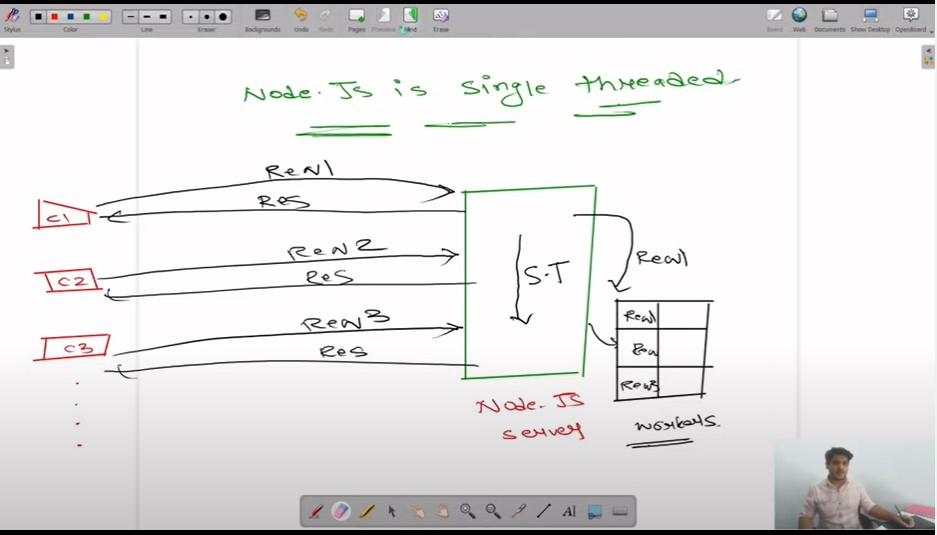 Stylus
Color
Line
Eraser
Backgrounds
Undo
Redo
Pages
Previous
Next
Erase
Board
Web
Documents
Show Desktop
OpenBoard
Node.Js is single threaded
ReN1
Res
C1
ReN2
Res
C2
ReN3
Res
C3
S.T
Node.JS
server
Ren1
Ren1
Ren
Ren3
workers.
AI